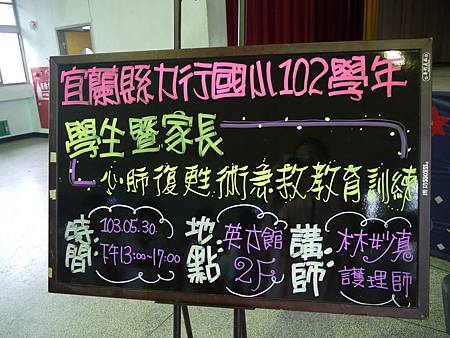 宜蘭縣力行國小102學年
學生暨家長
心肺復甦術急救教育訓練
時間:
103.05.30.
下午13:00~17:00
地點:
英才館
2F
講師:
林妙嘉
護理師